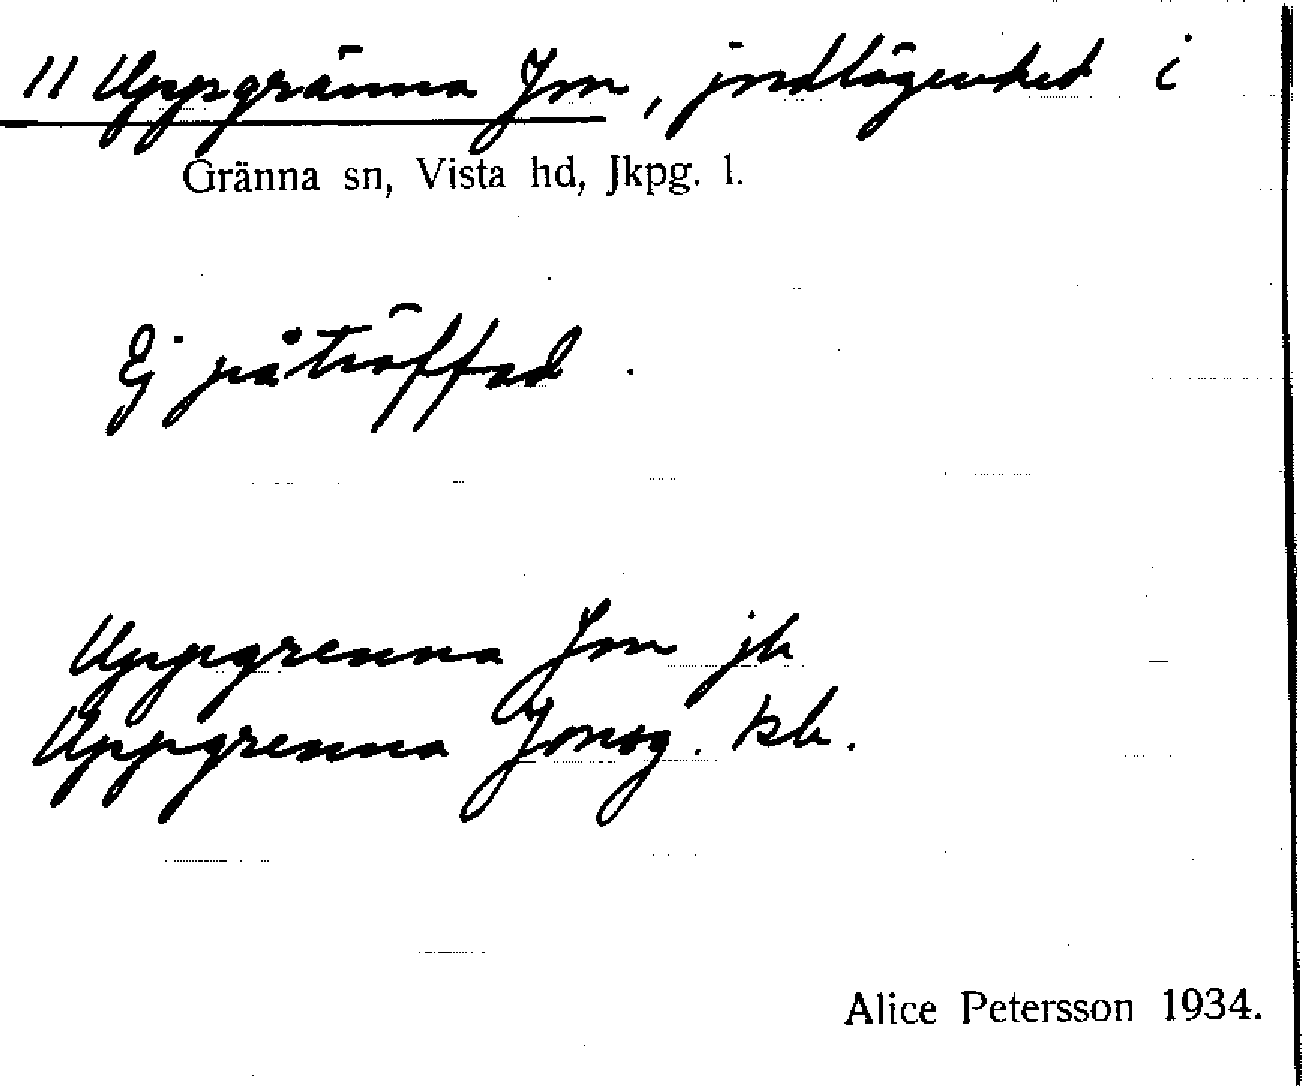 11 Uppgränna Jm, jordlägenhet i
Gränna sn, Vista hd, Jkpg. l.
Ej påträffad.
Uppgrenna Jm jb
Uppgrenna kb.
Alice Petersson 1934.